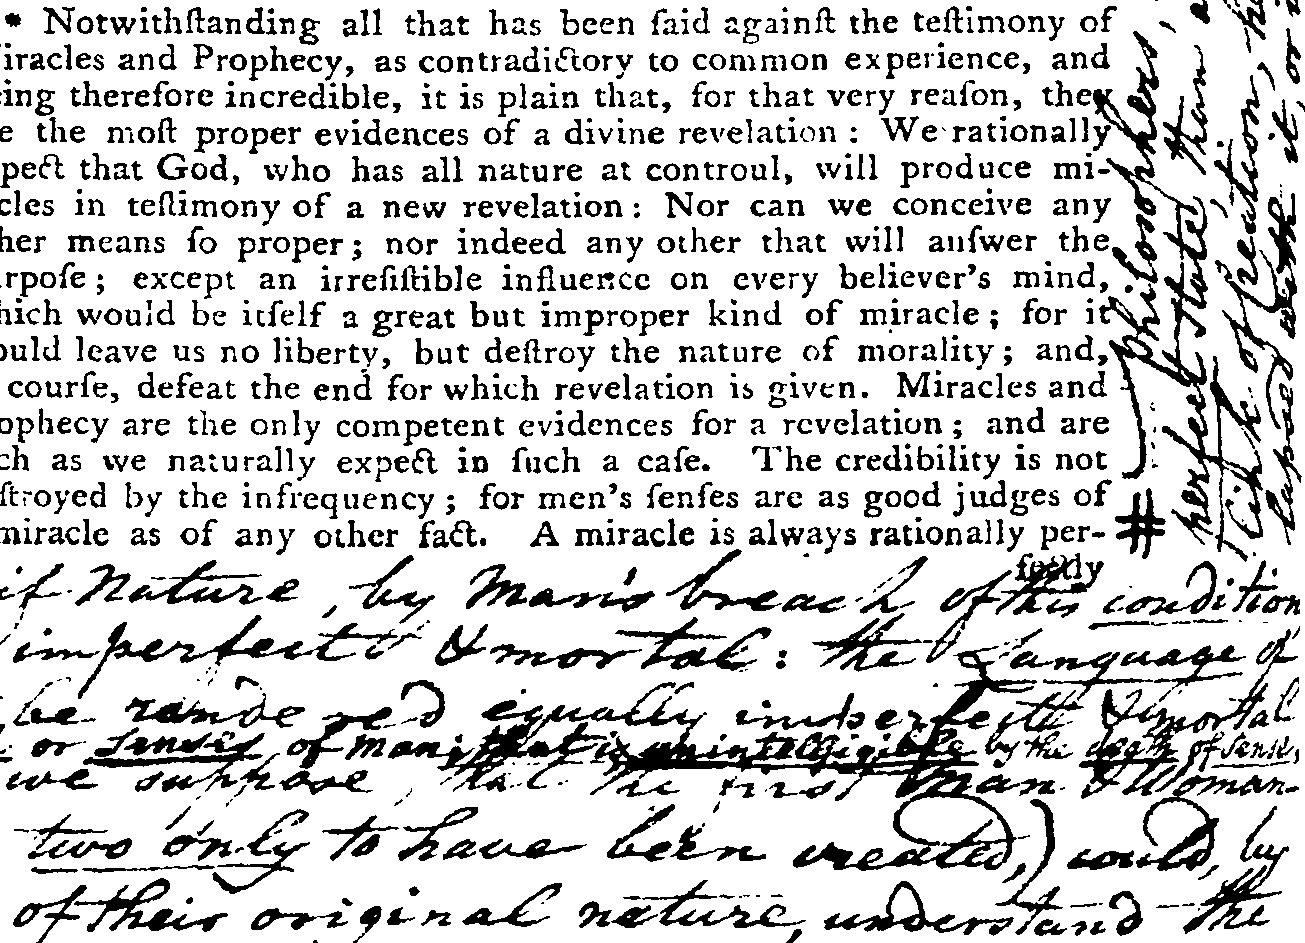 * Notwithſtanding all that has been ſaid againſt the teſtimony of
iracles and Prophecy, as contradictory to common experience, and
ing therefore incredible, it is plain that, for that very reaſon, they
e the moſt proper evidences of a divine revelation: We rationally
pect that God, who has all nature at controul, will produce mi-
cles in teſtimony of a new revelation: Nor can we conceive any
her means ſo proper; nor indeed any other that will anſwer the
rpoſe; except an irreſiſtible influence on every believer's mind,
hich would be itſelf a great but improper kind of miracle; for it
ould leave us no liberty, but deſtroy the nature of morality; and,
courſe, defeat the end for which revelation is given. Miracles and
ophecy are the only competent evidences for a revelation; and are
ch as we naturally expect in ſuch a caſe. The credibility is not
ſtroyed by the infrequency; for men's ſenſes are as good judges of
miracle as of any other fact. A miracle is always rationally per-
fectly
if Nature, by Man's breach of this condition
imperfect & mortal: the Language of
be rendered equally imperfect & mortal
or senses of man; that is unintelligible by the death of sense,
we suppose, that the first Man & Woman
two only to have been created,) could, by
of their original nature, understand the
Philosophers,
perfect state, than
of Creation,
lapsed with it, or